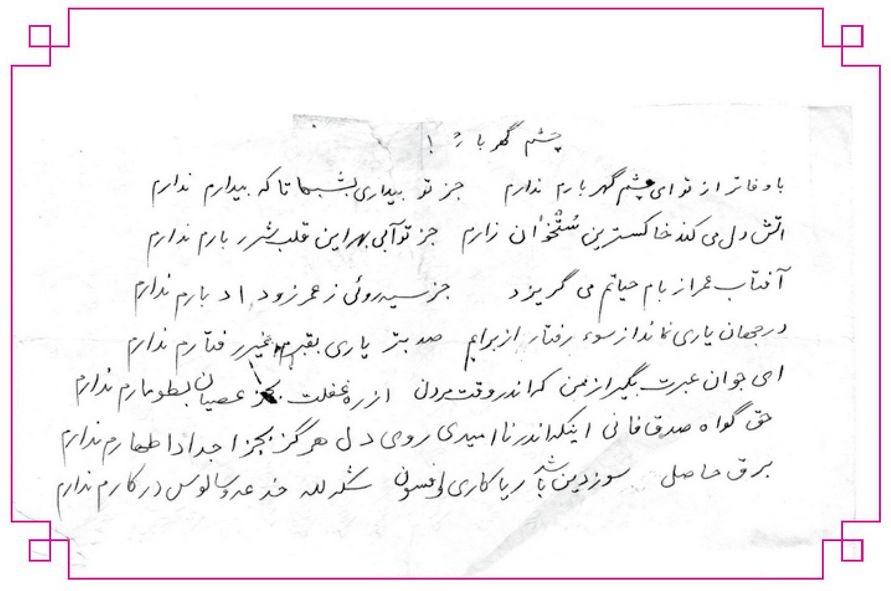 چشم گهر بار!
با وفاتر از تو ای چشم گهر بارم ندارم جز تو بیداری بشبها تا که بیدارم ندارم
آتش دل می کند خاکستر این سُتْخوٰان زارم جز تو آبی بهر این قلب شرر بارم ندارم
آفتاب عمر از بام حیاتم می گریزد جز سیه روئی ز عمر زود اد بارم ندارم
در جهان یاری نماند از سوء رفتار از برایم صد بتر یاری بقبرم غیر رفتارم ندارم
ای جوان عبرت بگیر از من که اندر وقت مردن از ره غفلت بجز عصیان بطومارم ندارم
حق گواه صدق فانی اینکه اندر نا امیدی روی دل هرگز بجز اجداد اطهارم ندارم
برق حاصل سوز دین باشد ریا کاری و افسون شکر لله خدعه و سالوس در کارم ندارم